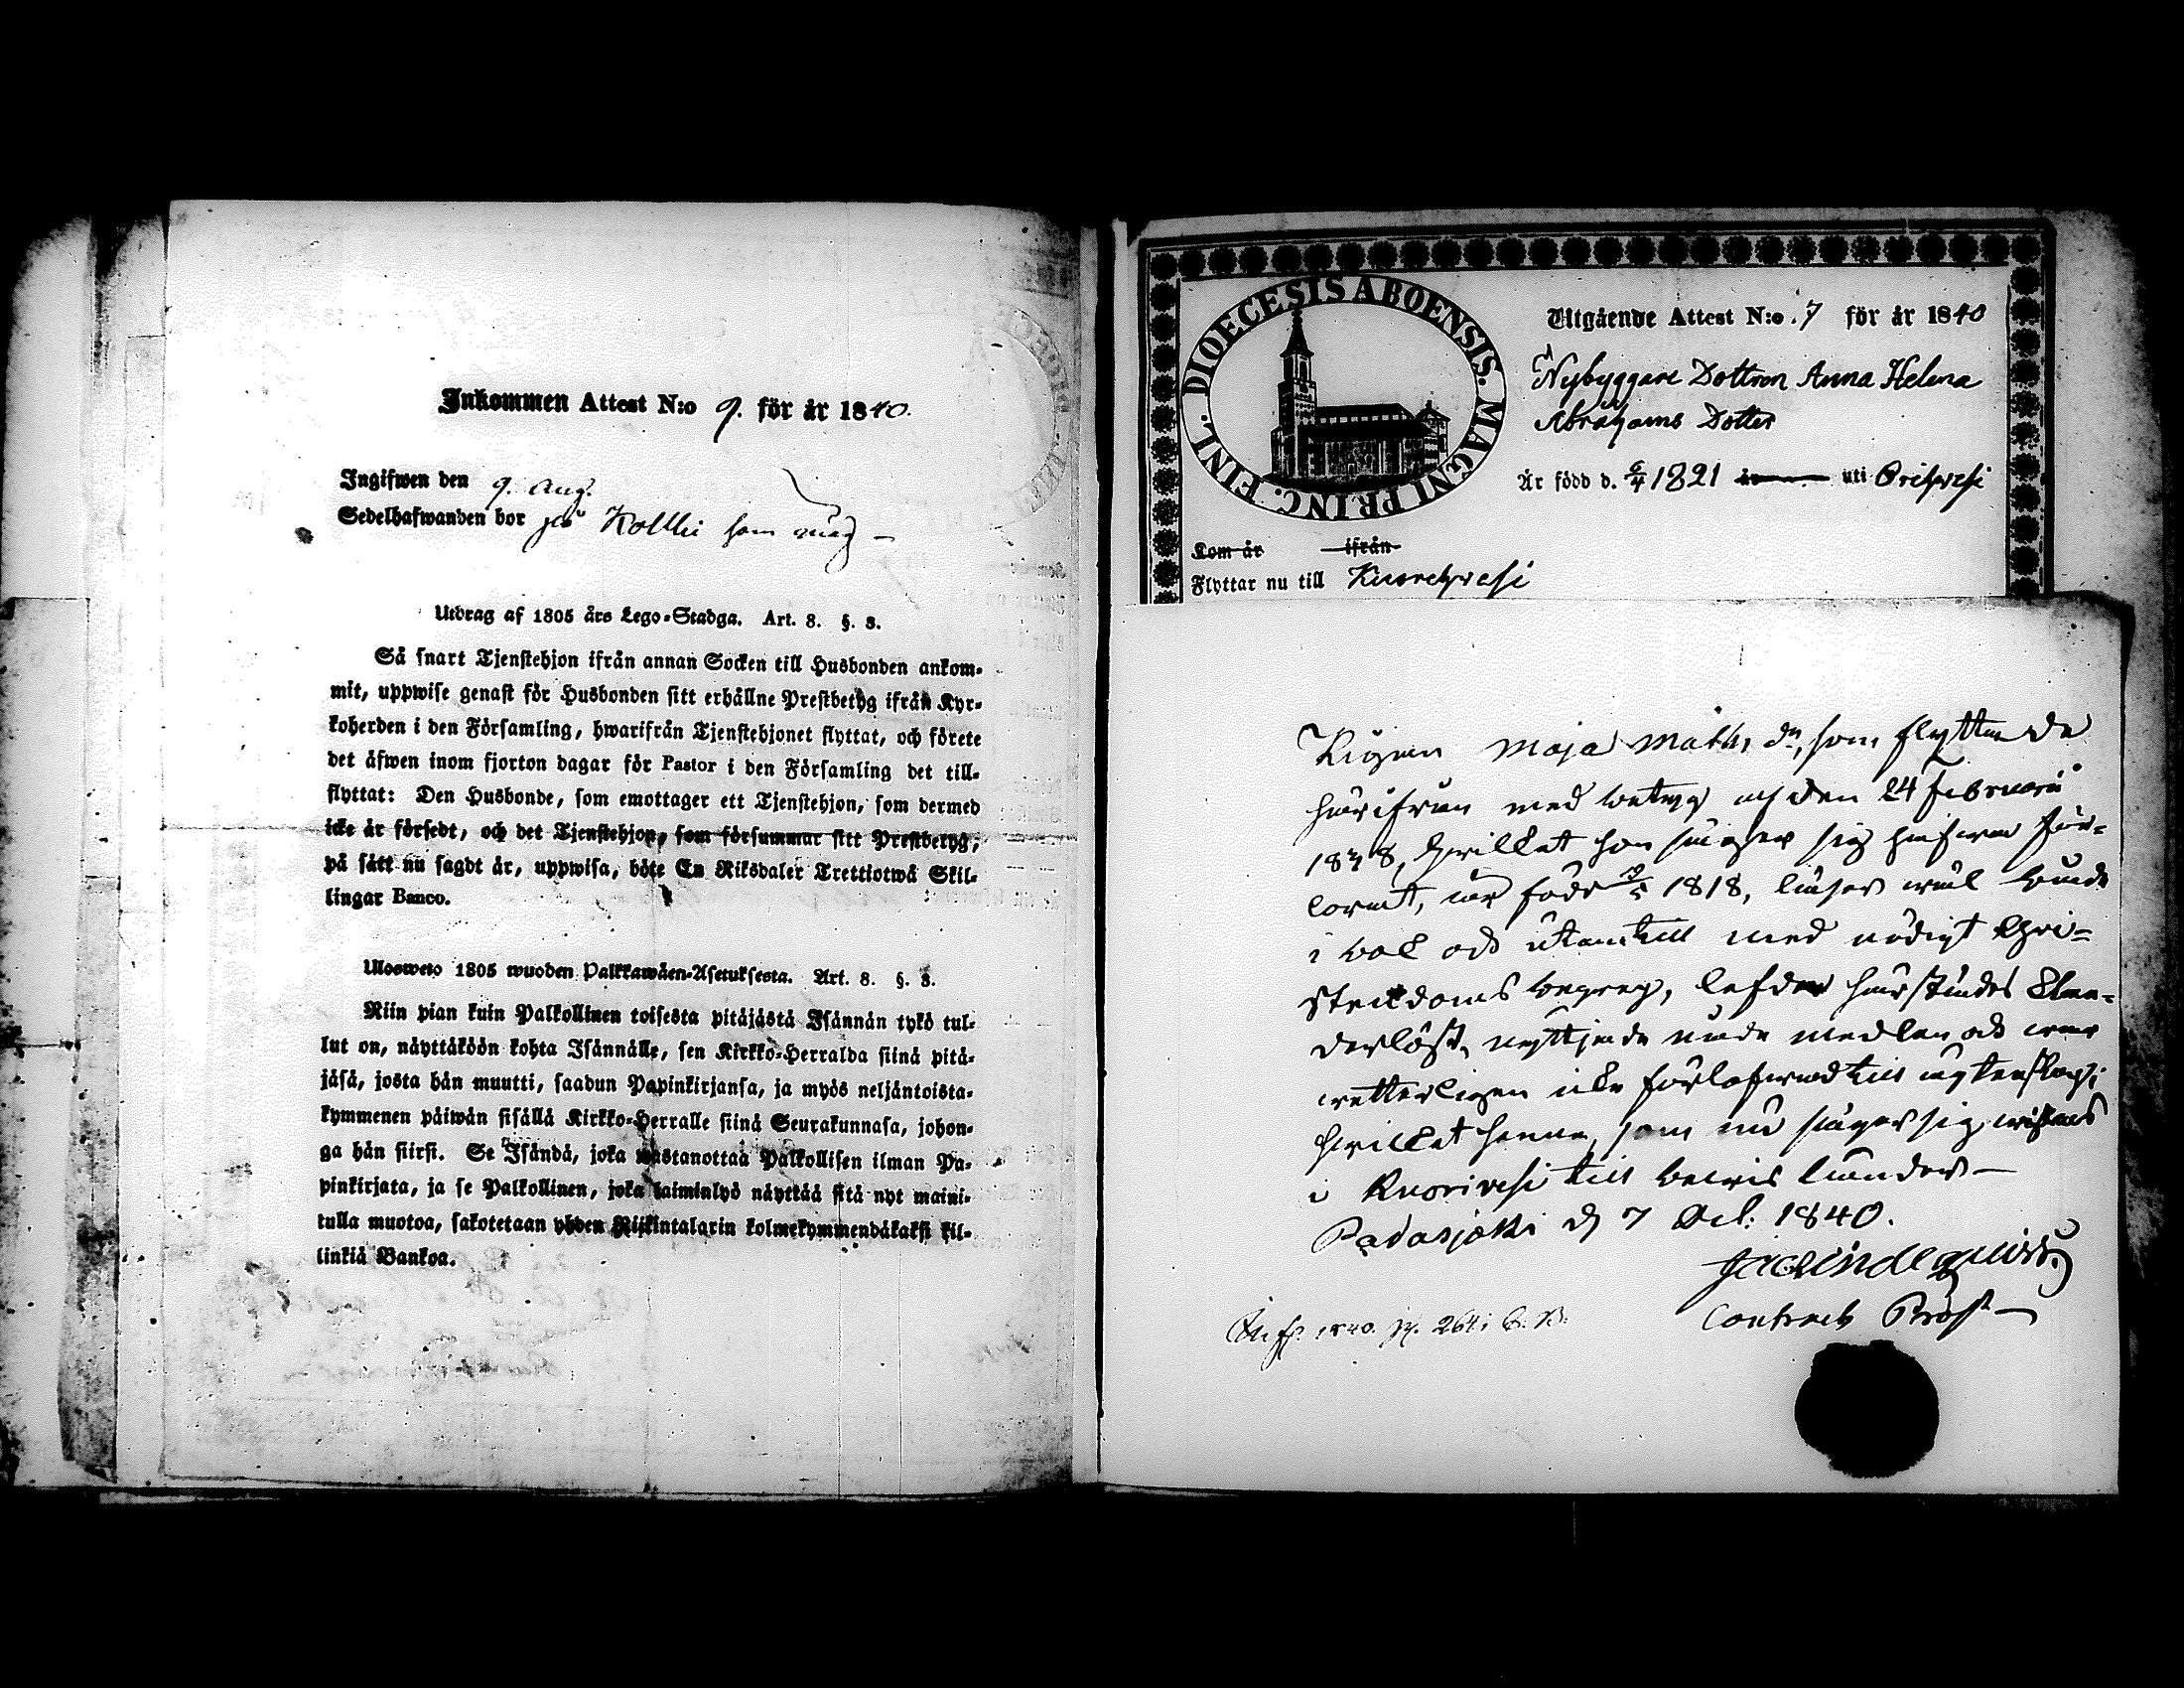 Inkommen Attest N:o 9. för år 1840.
Ingifwen den 9. Aug.
Sedelhafwanden bor på Kollki som
Utdrag af 1805 års Lego-Stadga. Art. 8. §. 3.
Så snart Tjenstehjon ifrån annan Socken till Husbonden ankom-
mit, uppwise genast för Husbonden sitt erhållne Prestbetyg ifrån Kyr-
koherden i den Församling, hwarifrån Tjenstehjonet flyttat, och förete
det äfwen inom fjorton dagar för Pastor i den Församling det till-
flyttat: Den Husbonde, som emottager ett Tjenstehjon, som dermed
icke är försedt, och det Tjenstehjon, som försummar sitt Prestbetyg,
på sätt nu sagdt är, uppwisa, böte En Riksdaler Trettiotwå Skil-
lingar Banco.
Ulosweto 1805 wuoden Palkkawäen-Asetuksesta. Art. 8. §. 3.
Niin pian kuin Palkollinen toisesta pitäjästä Isännän tykö tul-
lut on, näyttäköön kohta Isännälle, sen Kirkko-Herralda siinä pitä-
jäsä, josta hän muutti, saadun Papinkirjansa, ja myös neljäntoista-
kymmenen päiwän sisällä Kirkko-Herralle siinä Seurakunnasa, johon-
ga hän siirsi. Se Isändä, joka wastanottaa Palkollisen ilman Pa-
pinkirjata, ja se Palkollinen, joka laiminlyö näyttää sitä nyt maini-
tulla muotoa, sakotetaan yhden Riikintalarin kolmekymmendäkaksi kil-
linkiä Bankoa.
DIOECESIS ABOENSIS. MAGNI PRINC. FINL.
Utgående Attest N:o 7 för år 1840
Nybyggare Dottren Anna Helena
Abrahams Dotter
Är född d. 6/4 1821 år uti Orihvesi
Kom år ifrån
Flyttar nu till Kuorehvesi
Pigan Maja Matts dr, som flyttade
härifrån med betyg af den 24 Februarii
1838, hvilket hon säger sig hafwa för-
lorat, är född 1818, läser wäl både
i bok och utantill med nödigt Chri-
stendoms begrep, lefde härstädes Klan-
derlöst, nyttjade nåde medlen och war
wetterligen icke förlofwad till ägtenskap;
hvilket henne, som nu säger sig wistas
i Kuorivesi till bewis länder
Padasjoki d 7 Oct: 1840.
Contracts Prost